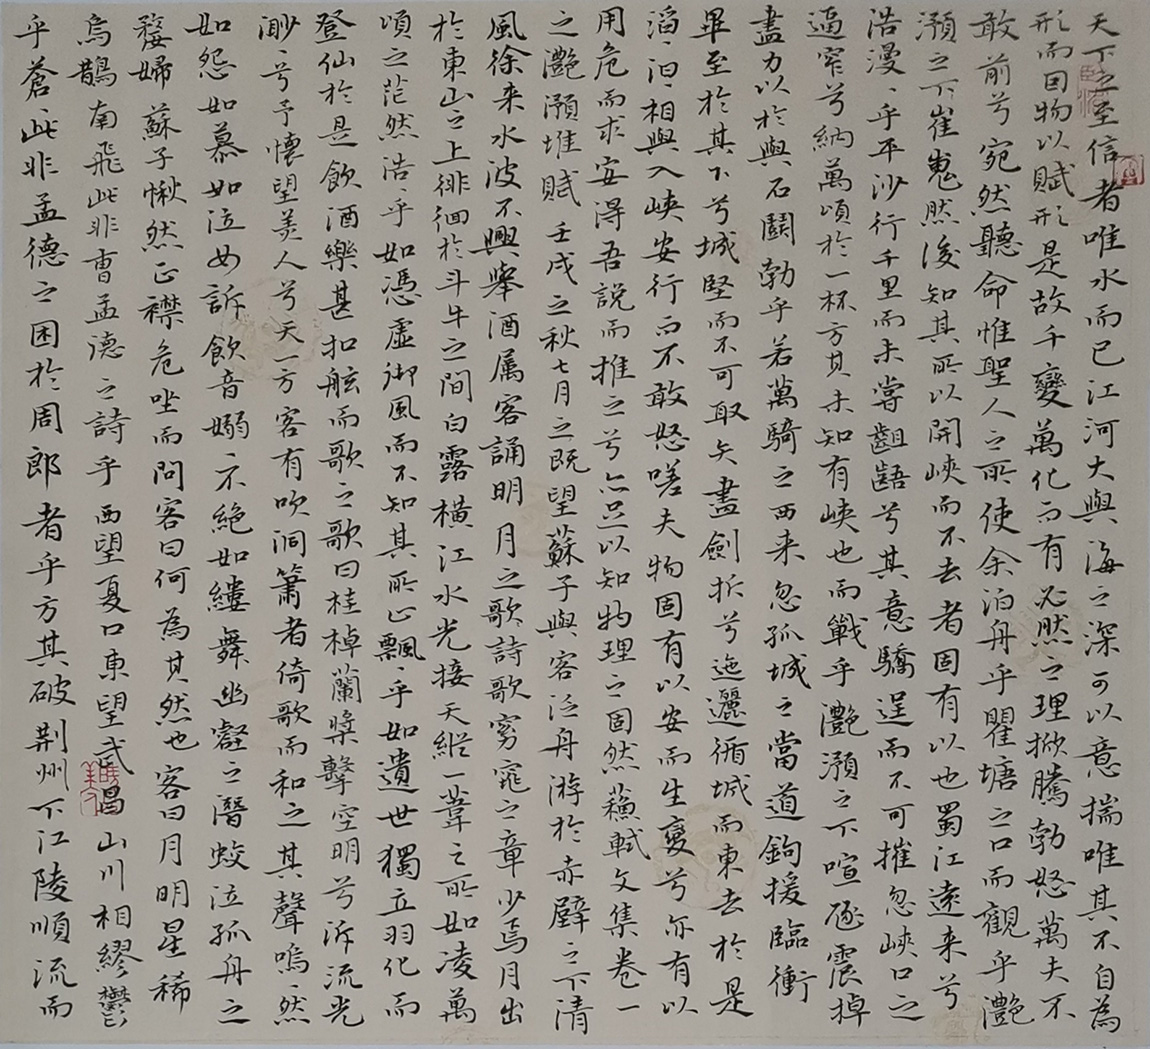 天下之至信者唯水而已江河大與海之深可以意揣唯其不自為
形而因物以賦形是故千變萬化而有必然之理掀騰勃怒萬夫不
敢前兮宛然聽命惟聖人之所使余泊舟乎瞿塘之口而觀乎灔
澦之下崔嵬然後知其所以開峽而不去者固有以也蜀江遠来兮
浩漫〻乎平沙行千里而未嘗齟齬兮其意驕逞而不可摧忽峽口之
逼窄兮納萬頃於一杯方其未知有峽也而戰乎灔澦之下喧豗震掉
盡力以於與石鬬勃乎若萬騎之西来忽孤城之當道鉤援臨衝
畢至於其下兮城堅而不可取矢盡劍折兮迤邐循城而東去於是
滔〻汩〻相與入峽安行而不敢怒嗟夫物固有以安而生變兮亦有以
用危而求安得吾說而推之兮亦足以知物理之固然蘇軾文集卷一
之灔澦堆賦 壬戌之秋七月之既望蘇子與客泛舟游於赤壁之下清
風徐来水波不興舉酒属客誦明月之歌詩歌窈窕之章少焉月出
於東山之上徘徊於斗牛之間白露橫江水光接天縱一葦之所如凌萬
頃之茫然浩〻乎如馮虛御風而不知其所止飄〻乎如遺世獨立羽化而
登仙於是飲酒樂甚扣舷而歌之歌曰桂棹蘭槳擊空明兮泝流光
渺〻兮予懷望美人兮天一方客有吹洞簫者倚歌而和之其聲嗚〻然
如怨如慕如泣如訴飲音嫋〻不絕如縷舞幽壑之潛蛟泣孤舟之
嫠婦 蘇子愀然正襟危坐而問客曰何為其然也客曰月明星稀
烏鵲南飛此非曹孟德之詩乎西望夏口東望武昌山川相繆鬱
乎蒼〻此非孟德之困於周郎者乎方其破荆州下江陵順流而